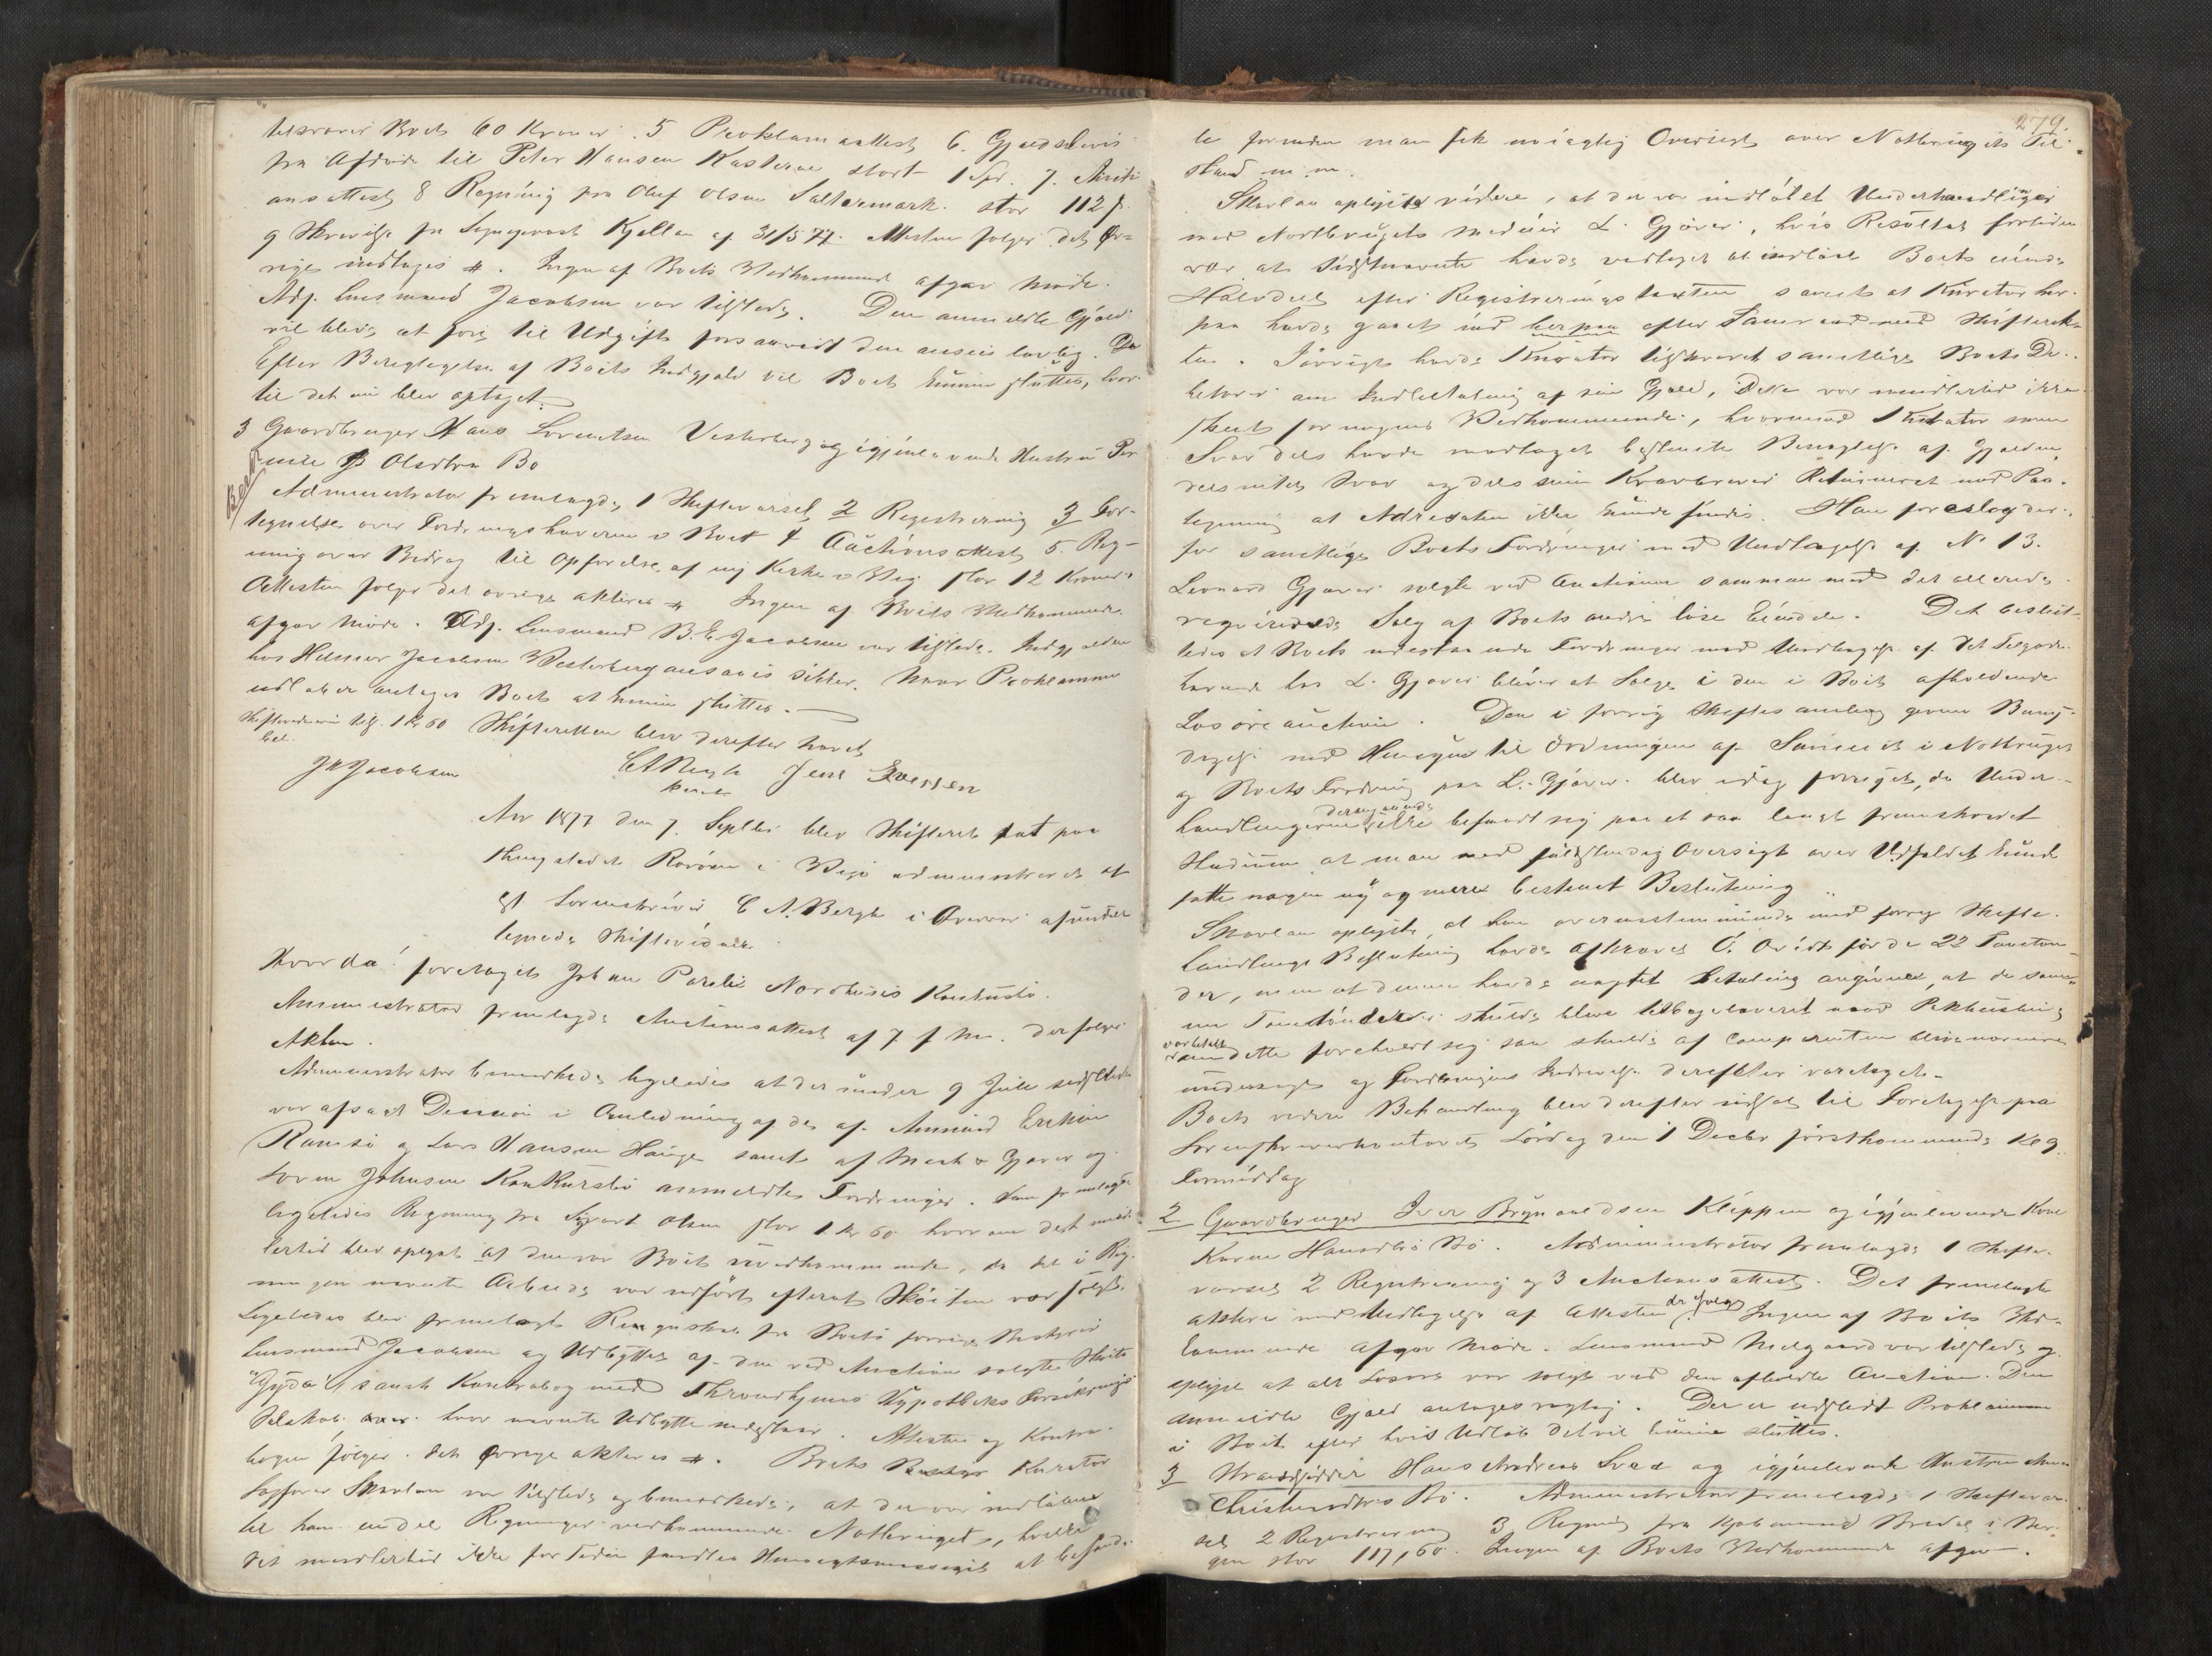 tilsvarer Boet 60 Kroner. 5 Proklamaattest 6. Gjældsbevis
fra Afdøde til Peter Hansen stort 1 Spd. 7. Auc
onsattest 8 Regning fra Oluf Olsen Saltermark. stor 112
9 Skrivelse fra Sogneprest Kjelland af 31/5 77. Attesten følger det øv-
rige indtages #. Ingen af Boets Vedkommende afgav Møde.
Adj. Lensmand Jacobsen var tilstede. Den anmeldte Gjæld
vil blive at føre til Udgift forsaavidt den ansees lovlig. Da
Efter Berigtigelse af Boets Indgjæld vil Boet kunne sluttes, hvor-
til det nu blev optaget.
3 Gaardbruger Hans Lorentsen Vesterberg og igjenlevende Hustru Per-
nille Olsdtrs Bo
Administrator fremlagde 1 Skiftevarsel 2 Registrering 3 For-
tegnelse over Fordringshaverne i Boet 4 Auctionsattest 5. Reg-
ning over Bidrag til Opførelse af ny Kirke i Vegø stor 12 Kroner.
Attesten følger det øvrige akteres #. Ingen af Boets Vedkommende
afgav Møde. Adj. Lensmand B. E. Jacobsen var tilstede. Indgjælden
hos Helmer Jacobsen Vesterberg ansaaes sikker. Naar Proklamaet
udløber antages Boet at kunne sluttes.
Skiftevidnerne tilf. 1 Kr 60 Skifteretten blev derefter hævet
bet.
J Jacobsen CABergh Jens Iversen
Aar 1877 den 7. Septbr blev Skifteret sat paa
Thingstedet Rørøen i Vegø administreret af
cst Sorenskriver C A. Bergh i Overvær af under-
tegnede Skiftevidner
Hvor da! foretoges Johan Parelius Nordhuus's Konkursbo.
Administrator fremlagde Auctionsattest af 7. f. M. der følger
Akten.
Administrator bemærkede ligeledes at der under 9 Juli sidstleden
var afsagt Decision i Anledning af de af Amund Erikson
Ramsø og Lars Hansen Hauge samt af Mack & Gjæver og
Soren Johnsen Konkursbo anmeldte Fordringer. Han fremlagde
ligeledes Regning fra Sivert Olsen stor 1 Kr 60 hvorom det imid-
lertid blev oplyst at den var Boet uvedkommende, da det i Reg-
ningen nævnte Arbeide var udført efterat Skøiten var solgt.
Ligeledes blev fremlagt Regnskab fra Boets forrige Bestyrer
Lensmand Jacobsen og Udbyttet af den ved Auction solgte Skøite
"Gyda" samt Kontrabog med Throndhjems Hypotheks Forsikrings
Selskab, hvor nævnte Udbytte nedstaar. Attesten og Kontra-
bogen følger. Det øvrige akteres #. Boets Kurator
Sagfører Skavlan var tilstede og bemærkede, at der var indløbet
til ham en del Regninger vedkommende Notbruget, hvilke
det imidlertid ikke for Tiden fandtes Hensigtsmæssigt at befatte
279.
le forinden man fik nøiagtig Oversigt over Notbrugets Til-
stand m. m.
Skavlan oplyste videre, at der var indledet Underhandlinger
med Notbrugets Medeier L. Gjæver, hvis Resultat fortiden
var at Sidstnævnte havde vedtaget at indløse Boets eiende
Halvdeel efter Registreringstaxten samt at Kurator her-
paa havde gaaet ind herpaa efter Samraad med Skifteret-
ten. Iøvrigt havde Kurator tilskrevet samtlige Boets De-
bitorer om Indbetaling af sin Gjæld, Dette var imidlertid ikke
skeet for nogens Vedkommende, hvorimod Kurator som
Svar dels havde modtaget bestemte Benægtelse af Gjælden,
dels intet Svar og dels sine Kravbreve Returneret med Paa-
tegning at Adressaten ikke kunde findes. Han foreslog der-
for samtlige Boets Fordringer med Undtagelse af No 13.
Leonard Gjæver solgte ved Auctionen sammen med det allerede
reqvirerede Salg af Boets andre løse Eiendele. Det beslut-
tedes at Boets udestaaende Fordringer med Undtagelse af det Tilgode-
havende hos L. Gjæver bliver at Sælge i den i Boet afholdende
Løsøreauction. Den i forrig Skiftesamling givne Bemyn-
digelse med Hensyn til Ordningen af Sameiet i Notbruget
og Boets Fordring paa L. Gjæver blev idag fornyet, da Under-
handlingerne derangaaende ikke befandt sig paa et saa langt fremskredet
Stadium at man med fuldstendig Oversigt over Udfaldet kunde
fatte nogen ny og mere bestemt Beslutning
Skavlan oplyste, at han overensstemmende med forrig Skifte-
handlings Beslutning havde afkrævet O. Qvist for de 22 Tomtøn-
der, men at denne havde nægtet Betaling angivende, at de samme
Tomtønder skulde blive tilbageleveret naar Pakhusleie
var betalt om dette forholdt sig saa skulde af Comparenten blive nærmere
undersøgt og Fordringens Inddrivelse derefter varetaget.
Boets videre Behandling blev derefter udsat til Foretagelse paa
Sorenskriverkontoret Lørdag den 1 Decbr førstkommende Kl 9
Formiddag
2 Gaardbruger Iver Brynnildsen Kleppen og igjenlevende Kone
Karen Hansdtrs Bo. Administrator fremlagde 1 Skifte-
varsel 2 Registrering og 3 Auctionsattest. Det fremlagte
akteres med Undtagelse af Attesten der følger. Ingen af Boets Ved-
kommende afgav Møde. Lensmand Melgaard var tilstede og
oplyste at alt Løsøre var solgt ved den afholdte Auction. Den
anmeldte Gjæld antages rigtig. Der er udstedt Proklama
i Boet efter hvis Udløb det vil kunne sluttes.
3 Strandsidder Hans Andreas Svee og igjenlevende Hustru
Christensdtrs Bo. Administrator fremlagde 1 Skiftevar-
sel 2 Registrering 3 Regning fra Kjøbmand Bredal i Ber-
gen stor 117,60. Ingen af Boets Vedkommende afgav